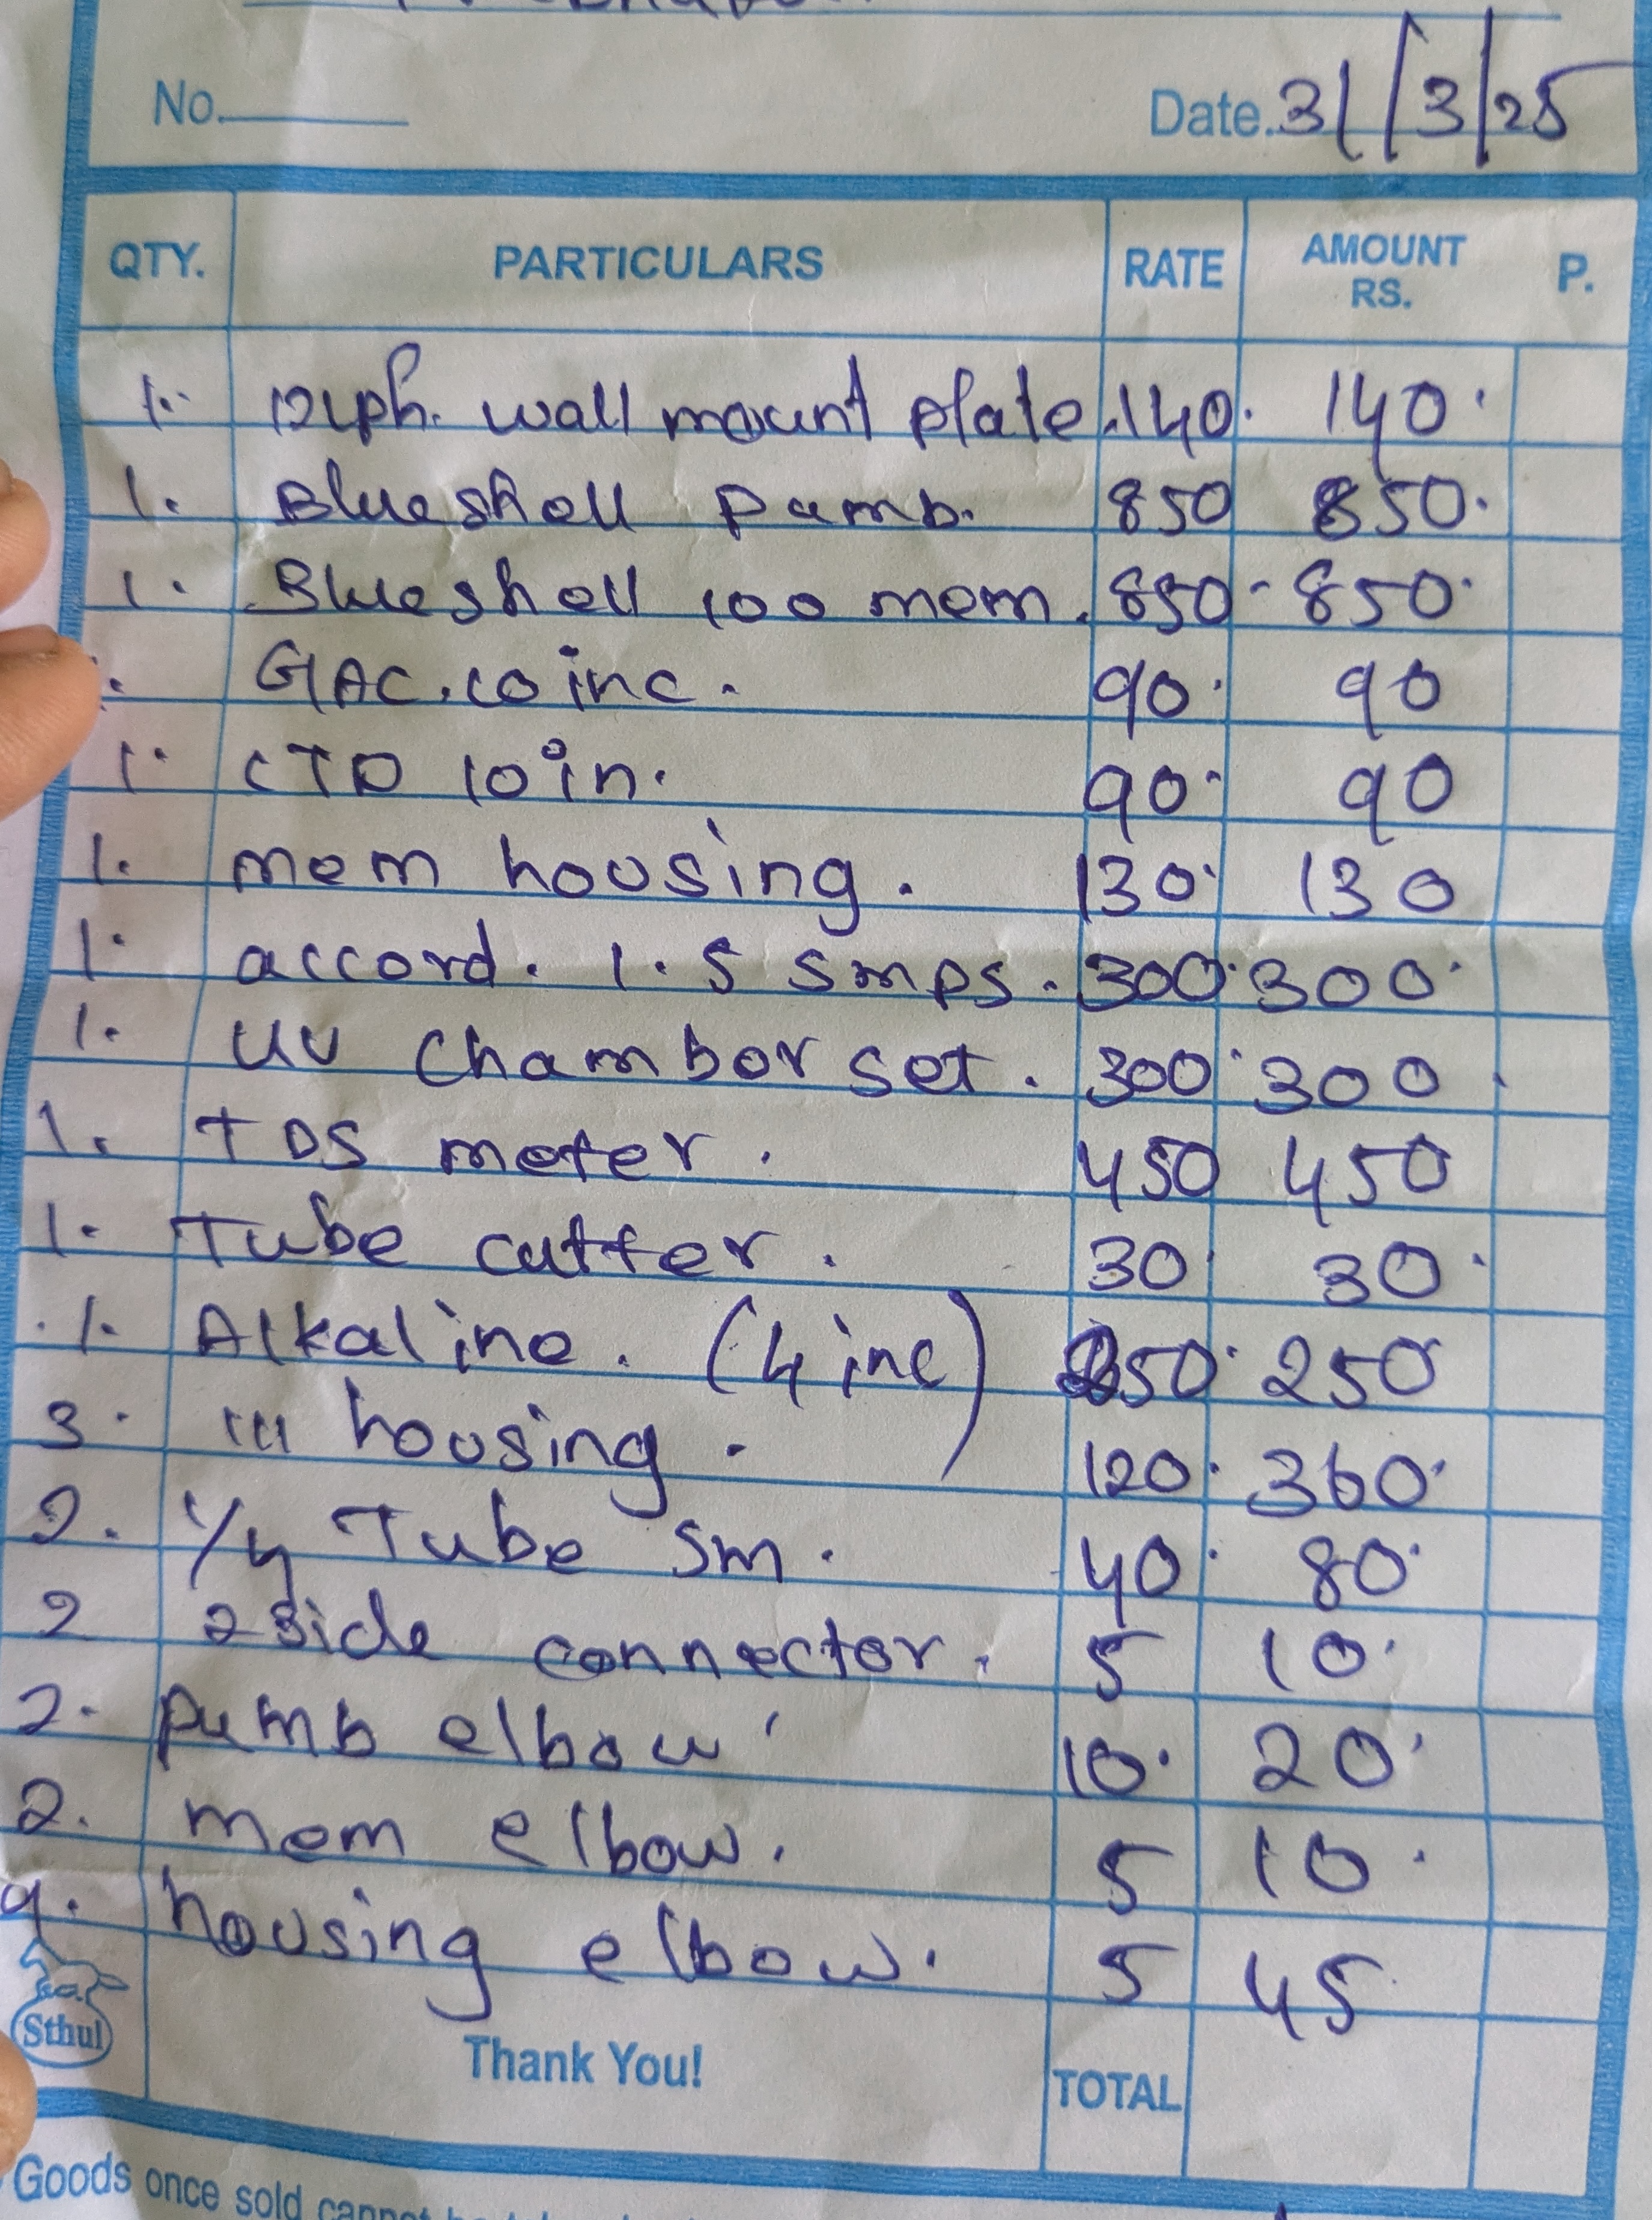 No.
Date. 31/3/25
QTY. PARTICULARS RATE AMOUNT RS. P.
1. 12lph. wall mount plate. 140. 140.
1. Blueshell Pamb. 850 850.
1. Blueshell 100 mem. 850. 850.
. GAC. 10 inc. 90. 90
1. CTO 10 in. 90. 90
1. mem housing. 130. 130
1. accord. 1.5 smps. 300. 300.
1. UV Chambor set. 300. 300
1. TDS meter. 450 450
1. Tube cutter. 30. 30.
1. Alkaline. (4 inc) 250. 250
3. housing. 120. 360.
2. 1/4 Tube 5m. 40. 80.
2 2side connector. 5 10.
2. Pumb elbow 10. 20.
2. mem elbow. 5 10.
9. housing elbow. 5 45
Sthul
Thank You!
TOTAL
Goods once sold cannot